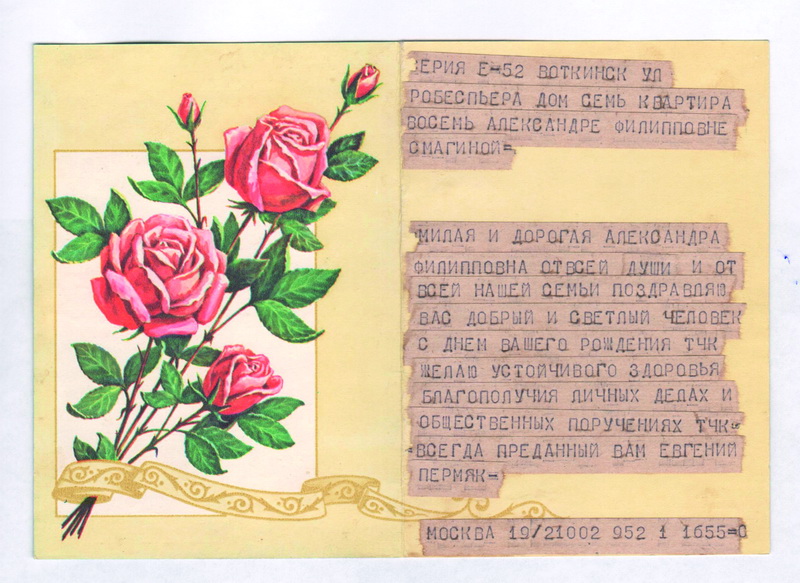 СЕРИЯ Е-52 ВОТКИНСК УЛ
РОБЕСПЬЕРА ДОМ СЕМЬ КВАРТИРА
ВОСЕМЬ АЛЕКСАНДРЕ ФИЛИППОВНЕ
СМАГИНОЙ=
МИЛАЯ И ДОРОГАЯ АЛЕКСАНДРА
ФИЛИППОВНА ОТВСЕЙ ДУШИ И ОТ
ВСЕЙ НАШЕЙ СЕМЬИ ПОЗДРАВЛЯЮ
ВАС ДОБРЫЙ И СВЕТЛЫЙ ЧЕЛОВЕК
С ДНЕМ ВАШЕГО РОЖДЕНИЯ ТЧК
ЖЕЛАЮ УСТОЙЧИВОГО ЗДОРОВЬЯ
БЛАГОПОЛУЧИЯ ЛИЧНЫХ ДЕЛАХ И
ОБЩЕСТВЕННЫХ ПОРУЧЕНИЯХ ТЧК=
=ВСЕГДА ПРЕДАННЫЙ ВАМ ЕВГЕНИЙ
ПЕРМЯК=
МОСКВА 19/21002 952 1 1655=0